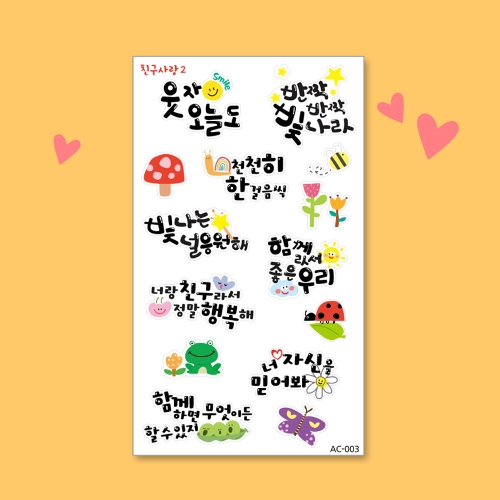 친구사랑 2
웃자 smile
오늘도
반짝
반짝
빛나라
천천히
한걸음씩
빛나는
널응원해
함께
라서
좋은우리
너랑친구라서
정말행복해
너 자신을
믿어봐
함께
하면무엇이든
할수있지
AC-003